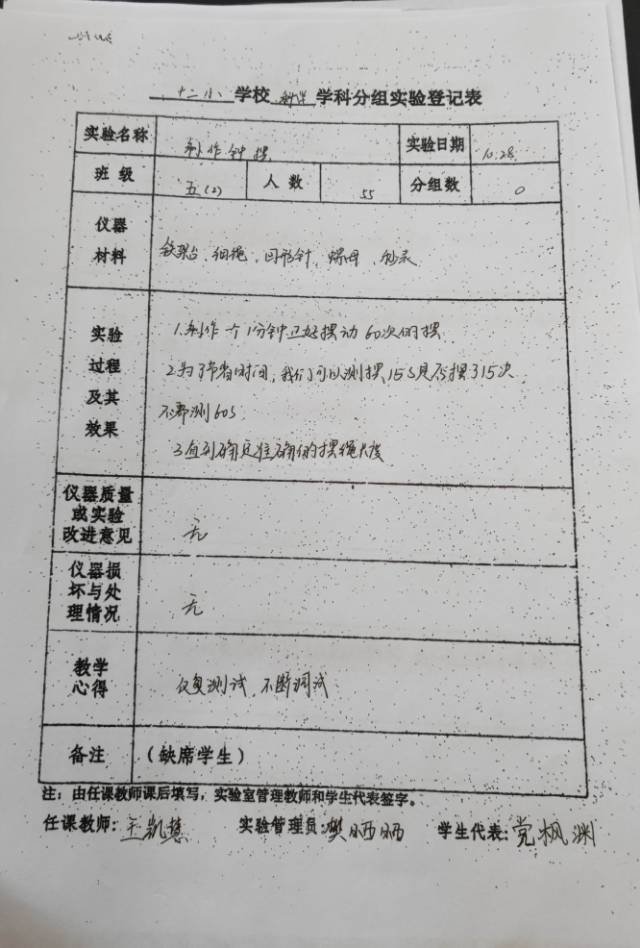 十二小 学校 科学 学科分组实验登记表
实验名称 制作钟摆 实验日期 10.28.
班级 五(2) 人数 55 分组数 0
仪器材料 铁架台、细绳、回形针、螺母、秒表
实验过程及其效果 1.制作一个1分钟正好摆动60次的摆
2.为了节省时间,我们可以测摆15S是否摆315次
不都测60S.
3.直到确定准确的摆绳长度
仪器质量或实验改进意见 无
仪器损坏与处理情况 无
教学心得 反复测试,不断调试
备注 (缺席学生)
注:由任课教师课后填写,实验室管理教师和学生代表签字。
任课教师:王凯慧 实验管理员:樊晒晒 学生代表:党枫渊